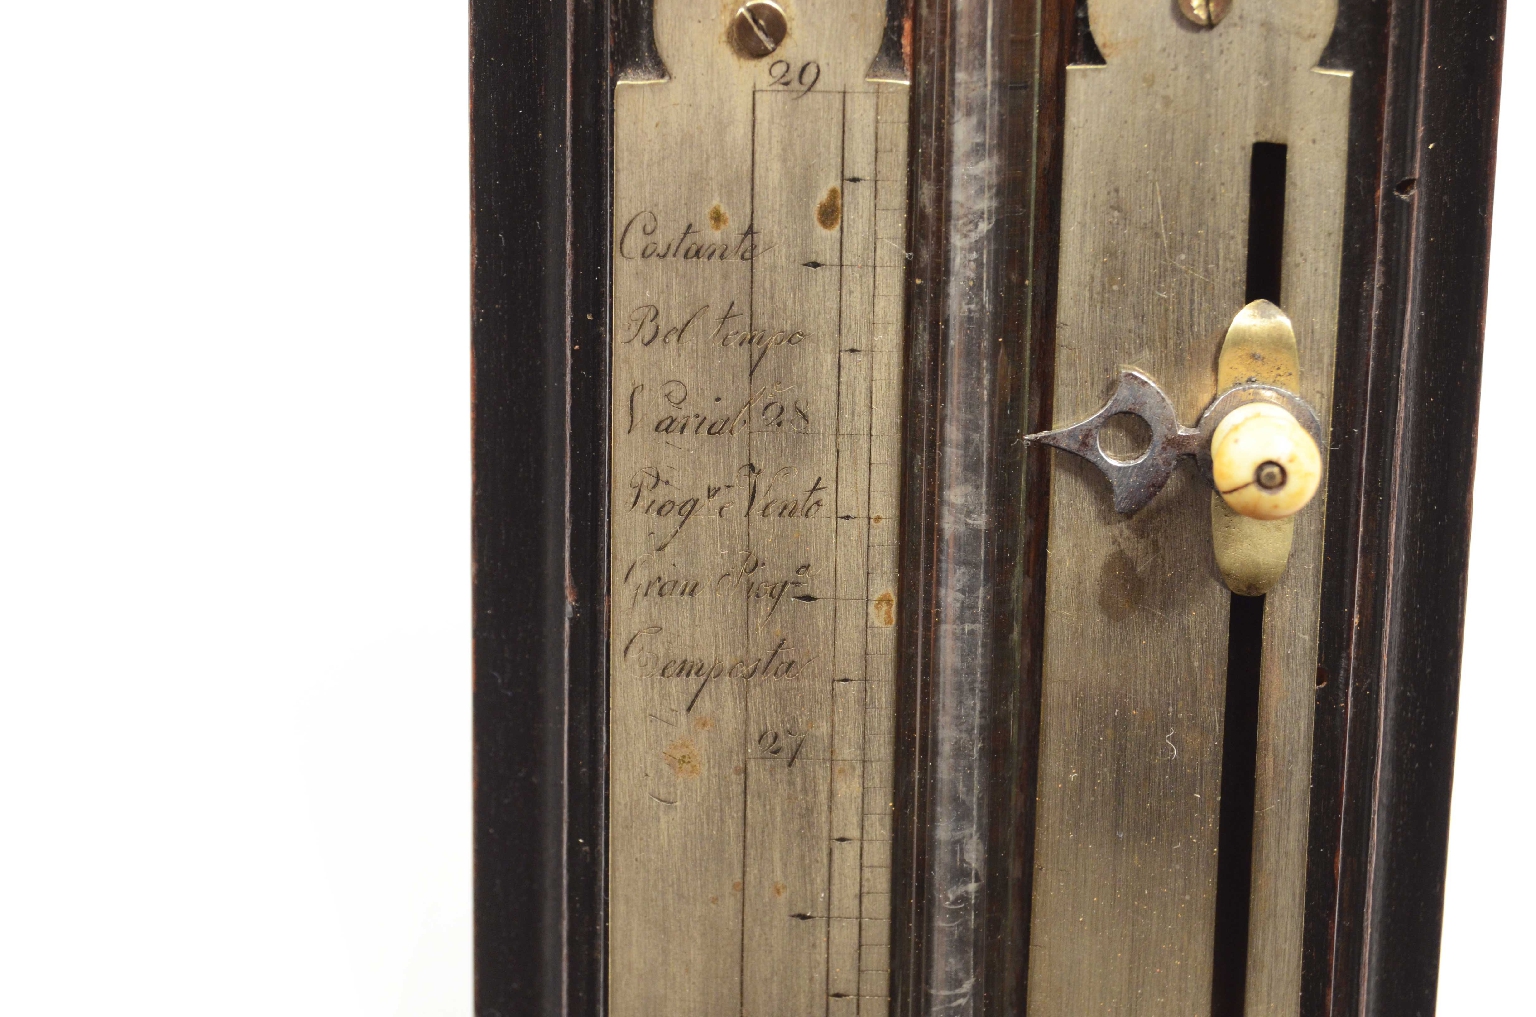 29
Costante
Bel tempo
Variab 28
Piogª e Vento
Gran Piogª
Tempesta
27